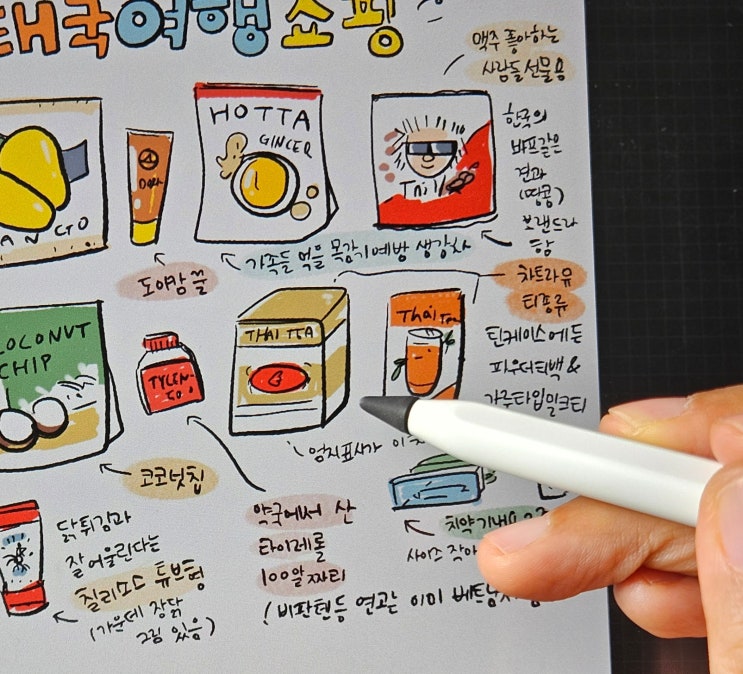 태국여행 쇼핑
맥주 좋아하는
사람들 선물용
HOTTA
GINGER
한국의
바프같은
견과
(땅콩)
브랜드라
함
도이캄 꿀
가족들 먹을 목감기예방 생강차
차트라뮤
티종류
틴케이스에든
파우더티백 &
가루타입밀크티
COCONUT
CHIP
TYLEN
THAI TEA
Thai Tea
엄지표시가
코코넛칩
약국에서 산
타이레놀
100알 짜리
치약
사이즈 작아
닭튀김과
잘 어울린다는
칠리소스 튜브형
(가운데 장닭
그림 있음)
(비판텐등 연고는 이미